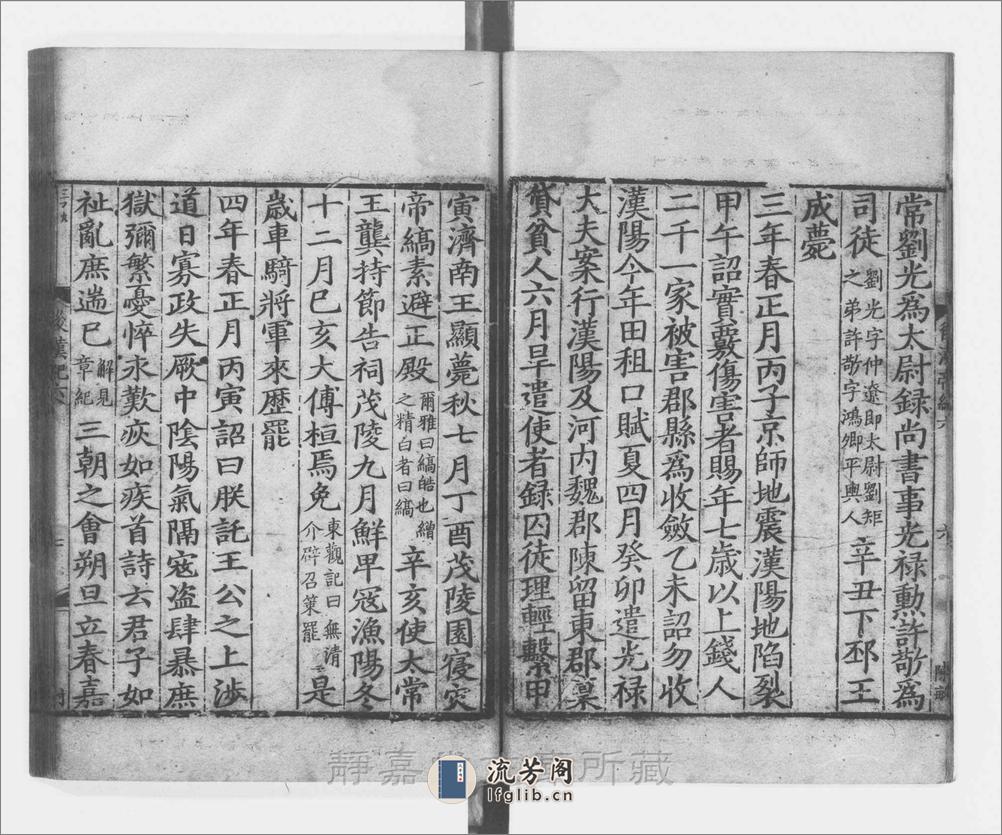 常劉光爲太尉録尚書事光禄勲許敬爲
司徒劉光字仲遼即太尉劉矩之弟許敬字鴻卿平輿人辛丑下邳王
成薨
三年春正月丙子京師地震漢陽地陷裂
甲午詔實覈傷害者賜年七歳以上錢人
二千一家被害郡縣爲收斂乙未詔勿收
漢陽今年田租口賦夏四月癸卯遣光禄
大夫案行漢陽及河内魏郡陳留東郡稟
貸貧人六月旱遣使者録囚徒理輕繫甲
寅濟南王顯薨秋七月丁酉茂陵園寢災
帝縞素避正殿爾雅曰縞皓也繒之精白者曰縞辛亥使太常
王龔持節告祠茂陵九月鮮卑寇漁陽冬
十二月己亥大傅桓焉免東觀記曰無清介辟召策罷是
歳車騎將軍來歴罷
四年春正月丙寅詔曰朕託王公之上渉
道日寡政失厥中隂陽氣隔寇盗肆暴庶
獄彌繁憂悴永歎疢如疾首詩云君子如
祉亂庶遄巳解見章紀三朝之會朔旦立春嘉
後漢紀六
靜嘉 所藏
流芳阁
lfglib.cn